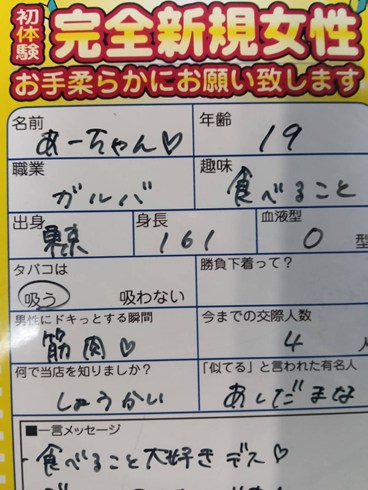 初体験 完全新規女性
お手柔らかにお願い致します
名前 あーちゃん♡ 年齢 19
職業 ガルバ 趣味 食べること
出身 東京 身長 161 血液型 O 型
タバコは 吸う 吸わない 勝負下着って?
男性にドキっとする瞬間 筋肉♡ 今までの交際人数 4 人
何で当店を知りましたか? しょうかい 「似てる」と言われた有名人 あしだまな
■一言メッセージ
・食べること大好きデス♡